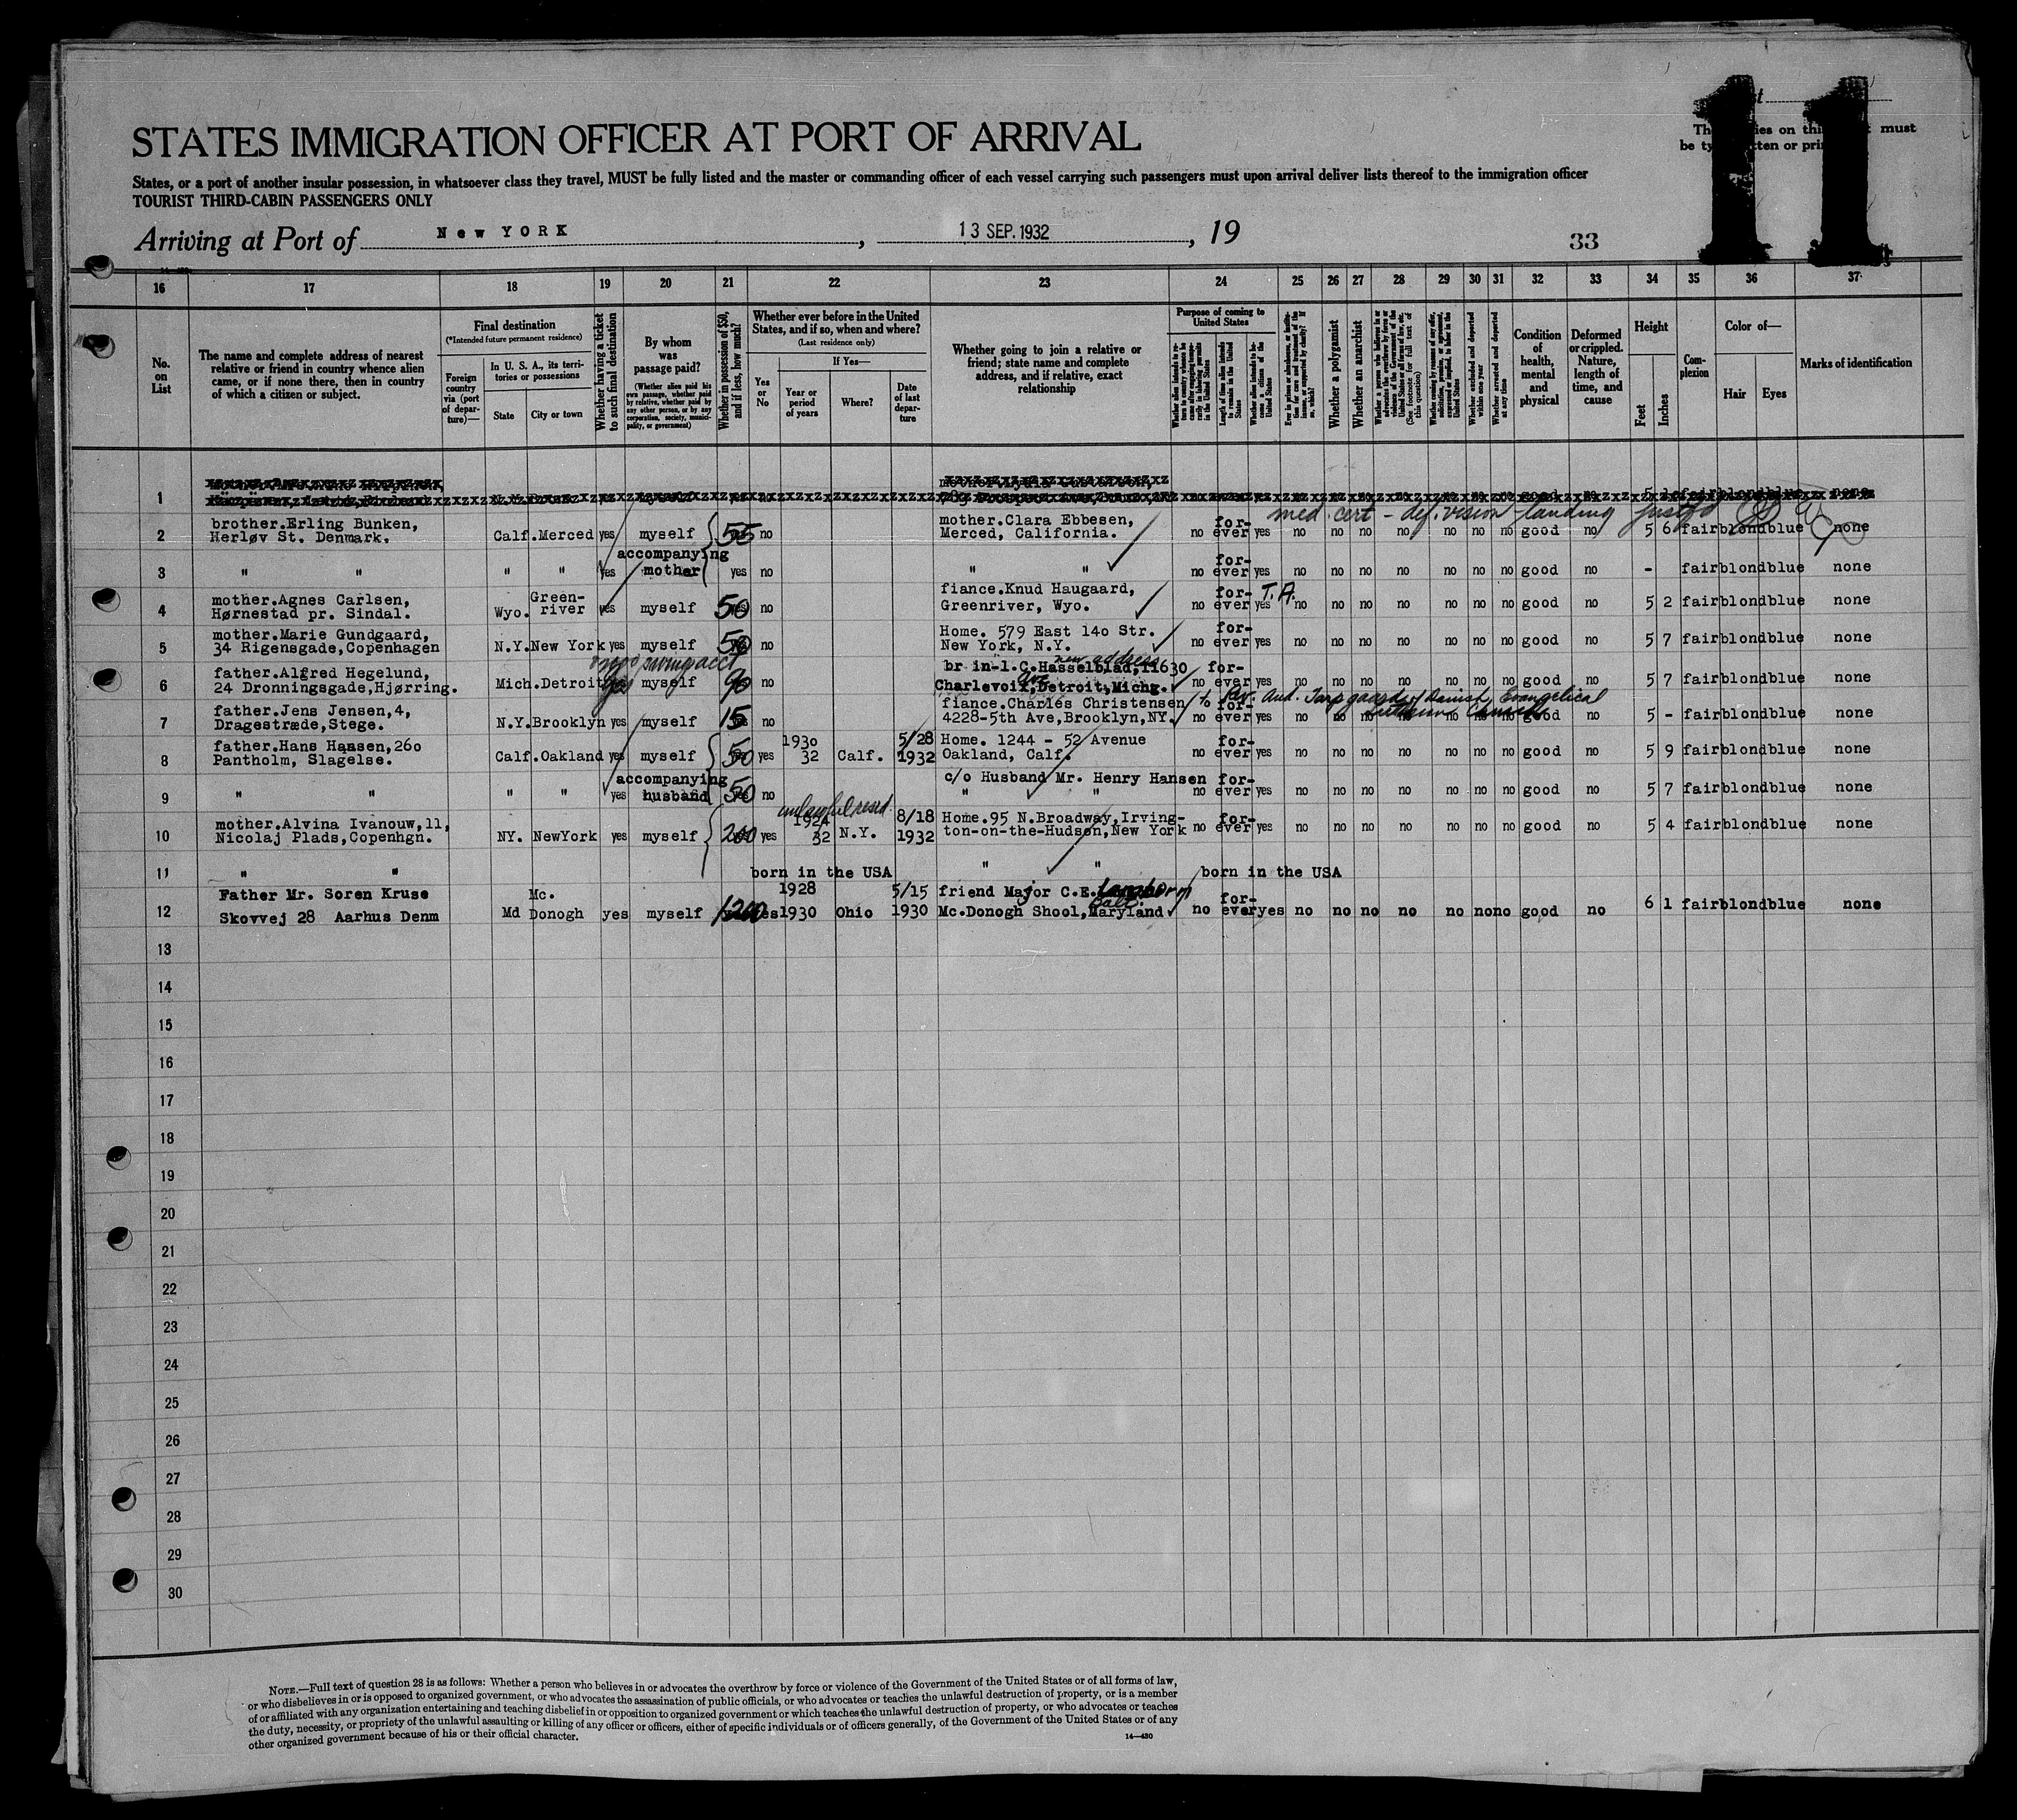 11
STATES IMMIGRATION OFFICER AT PORT OF ARRIVAL
must
States, or a port of another insular possession, in whatsoever class they travel, MUST be fully listed and the master or commanding officer of each vessel carrying such passengers must upon arrival deliver lists thereof to the immigration officer
TOURIST THIRD-CABIN PASSENGERS ONLY
Arriving at Port of New YORK, 13 SEP. 1932, 19
33
16 17 18 19 20 21 22 23 24 25 26 27 28 29 30 31 32 33 34 35 36 37
No. on List
The name and complete address of nearest relative or friend in country whence alien came, or if none there, then in country of which a citizen or subject.
Final destination
(*Intended future permanent residence)
Foreign country via (port of departure)—
In U. S. A., its territories or possessions
State City or town
Whether having a ticket to such final destination
By whom was passage paid?
(Whether alien paid his own passage, whether paid by relative, whether paid by any other person, or by any corporation, society, municipality, or government)
Whether in possession of $50, and if less, how much?
Whether ever before in the United States, and if so, when and where?
(Last residence only)
If Yes—
Yes or No
Year or period of years
Where?
Date of last departure
Whether going to join a relative or friend; state name and complete address, and if relative, exact relationship
Purpose of coming to United States
Length of time alien intends to remain in the United States
Whether alien intends to become a citizen of the United States
Whether a polygamist
Whether an anarchist
Condition of health, mental and physical
Deformed or crippled. Nature, length of time, and cause
Height
Feet Inches
Complexion
Color of—
Hair Eyes
Marks of identification
1
med. cert - def. vision landing
brother.Erling Bunken, mother.Clara Ebbesen, for-
2 Herløv St. Denmark. Calf. Merced yes myself 55 no Merced, California. no ever yes no no no no no no no good no 5 6 fair blond blue none
accompanying for-
3 " " " " yes mother yes no " " no ever yes no no no no no no no good no - fair blond blue none
mother.Agnes Carlsen, Green- fiance.Knud Haugaard, for- T.A.
4 Hørnestad pr. Sindal. Wyo. river yes myself 50 no Greenriver, Wyo. no ever yes no no no no no no no good no 5 2 fair blond blue none
mother.Marie Gundgaard, Home. 579 East 14o Str. for-
5 34 Rigensgade,Copenhagen N.Y. New York yes myself 50 no New York, N.Y. no ever yes no no no no no no no good no 5 7 fair blond blue none
new address
father.Alfred Hegelund, br in-l.C.Hasselblad,11630 for-
6 24 Dronningsgade,Hjørring. Mich. Detroit yes myself 90 no Charlevoix Ave,Detroit,Michg. no ever yes no no no no no no no good no 5 7 fair blond blue none
father.Jens Jensen,4, fiance.Charles Christensen for-
7 Dragestræde,Stege. N.Y. Brooklyn yes myself 15 no 4228-5th Ave,Brooklyn,NY. no ever yes no no no no no no no good no 5 - fair blond blue none
father.Hans Hansen,26o 193o 5/28 Home. 1244 - 52 Avenue for-
8 Pantholm, Slagelse. Calf. Oakland yes myself 50 yes 32 Calf. 1932 Oakland, Calf. no ever yes no no no no no no no good no 5 9 fair blond blue none
accompanying c/o Husband Mr. Henry Hansen for-
9 " " " " yes husband 50 no " " no ever yes no no no no no no no good no 5 7 fair blond blue none
unlawful resid.
mother.Alvina Ivanouw,11, 1924 8/18 Home.95 N.Broadway,Irving- for-
10 Nicolaj Plads,Copenhgn. NY. NewYork yes myself 200 yes 32 N.Y. 1932 ton-on-the-Hudson,New York no ever yes no no no no no no no good no 5 4 fair blond blue none
11 " " born in the USA " " born in the USA
Father Mr. Soren Kruse Mc. 1928 5/15 friend Major C.E. for-
12 Skovvej 28 Aarhus Denm Md Donogh yes myself 1200 yes 1930 Ohio 1930 Mc.Donogh Shool, Balt. Maryland no ever yes no no no no no no no good no 6 1 fair blond blue none
13
14
15
16
17
18
19
20
21
22
23
24
25
26
27
28
29
30
NOTE.—Full text of question 28 is as follows: Whether a person who believes in or advocates the overthrow by force or violence of the Government of the United States or of all forms of law,
or who disbelieves in or is opposed to organized government, or who advocates the assassination of public officials, or who advocates or teaches the unlawful destruction of property, or is a member
of or affiliated with any organization entertaining and teaching disbelief in or opposition to organized government or which teaches the unlawful destruction of property, or who advocates or teaches
the duty, necessity, or propriety of the unlawful assaulting or killing of any officer or officers, either of specific individuals or of officers generally, of the Government of the United States or of any
other organized government because of his or their official character.
14—430